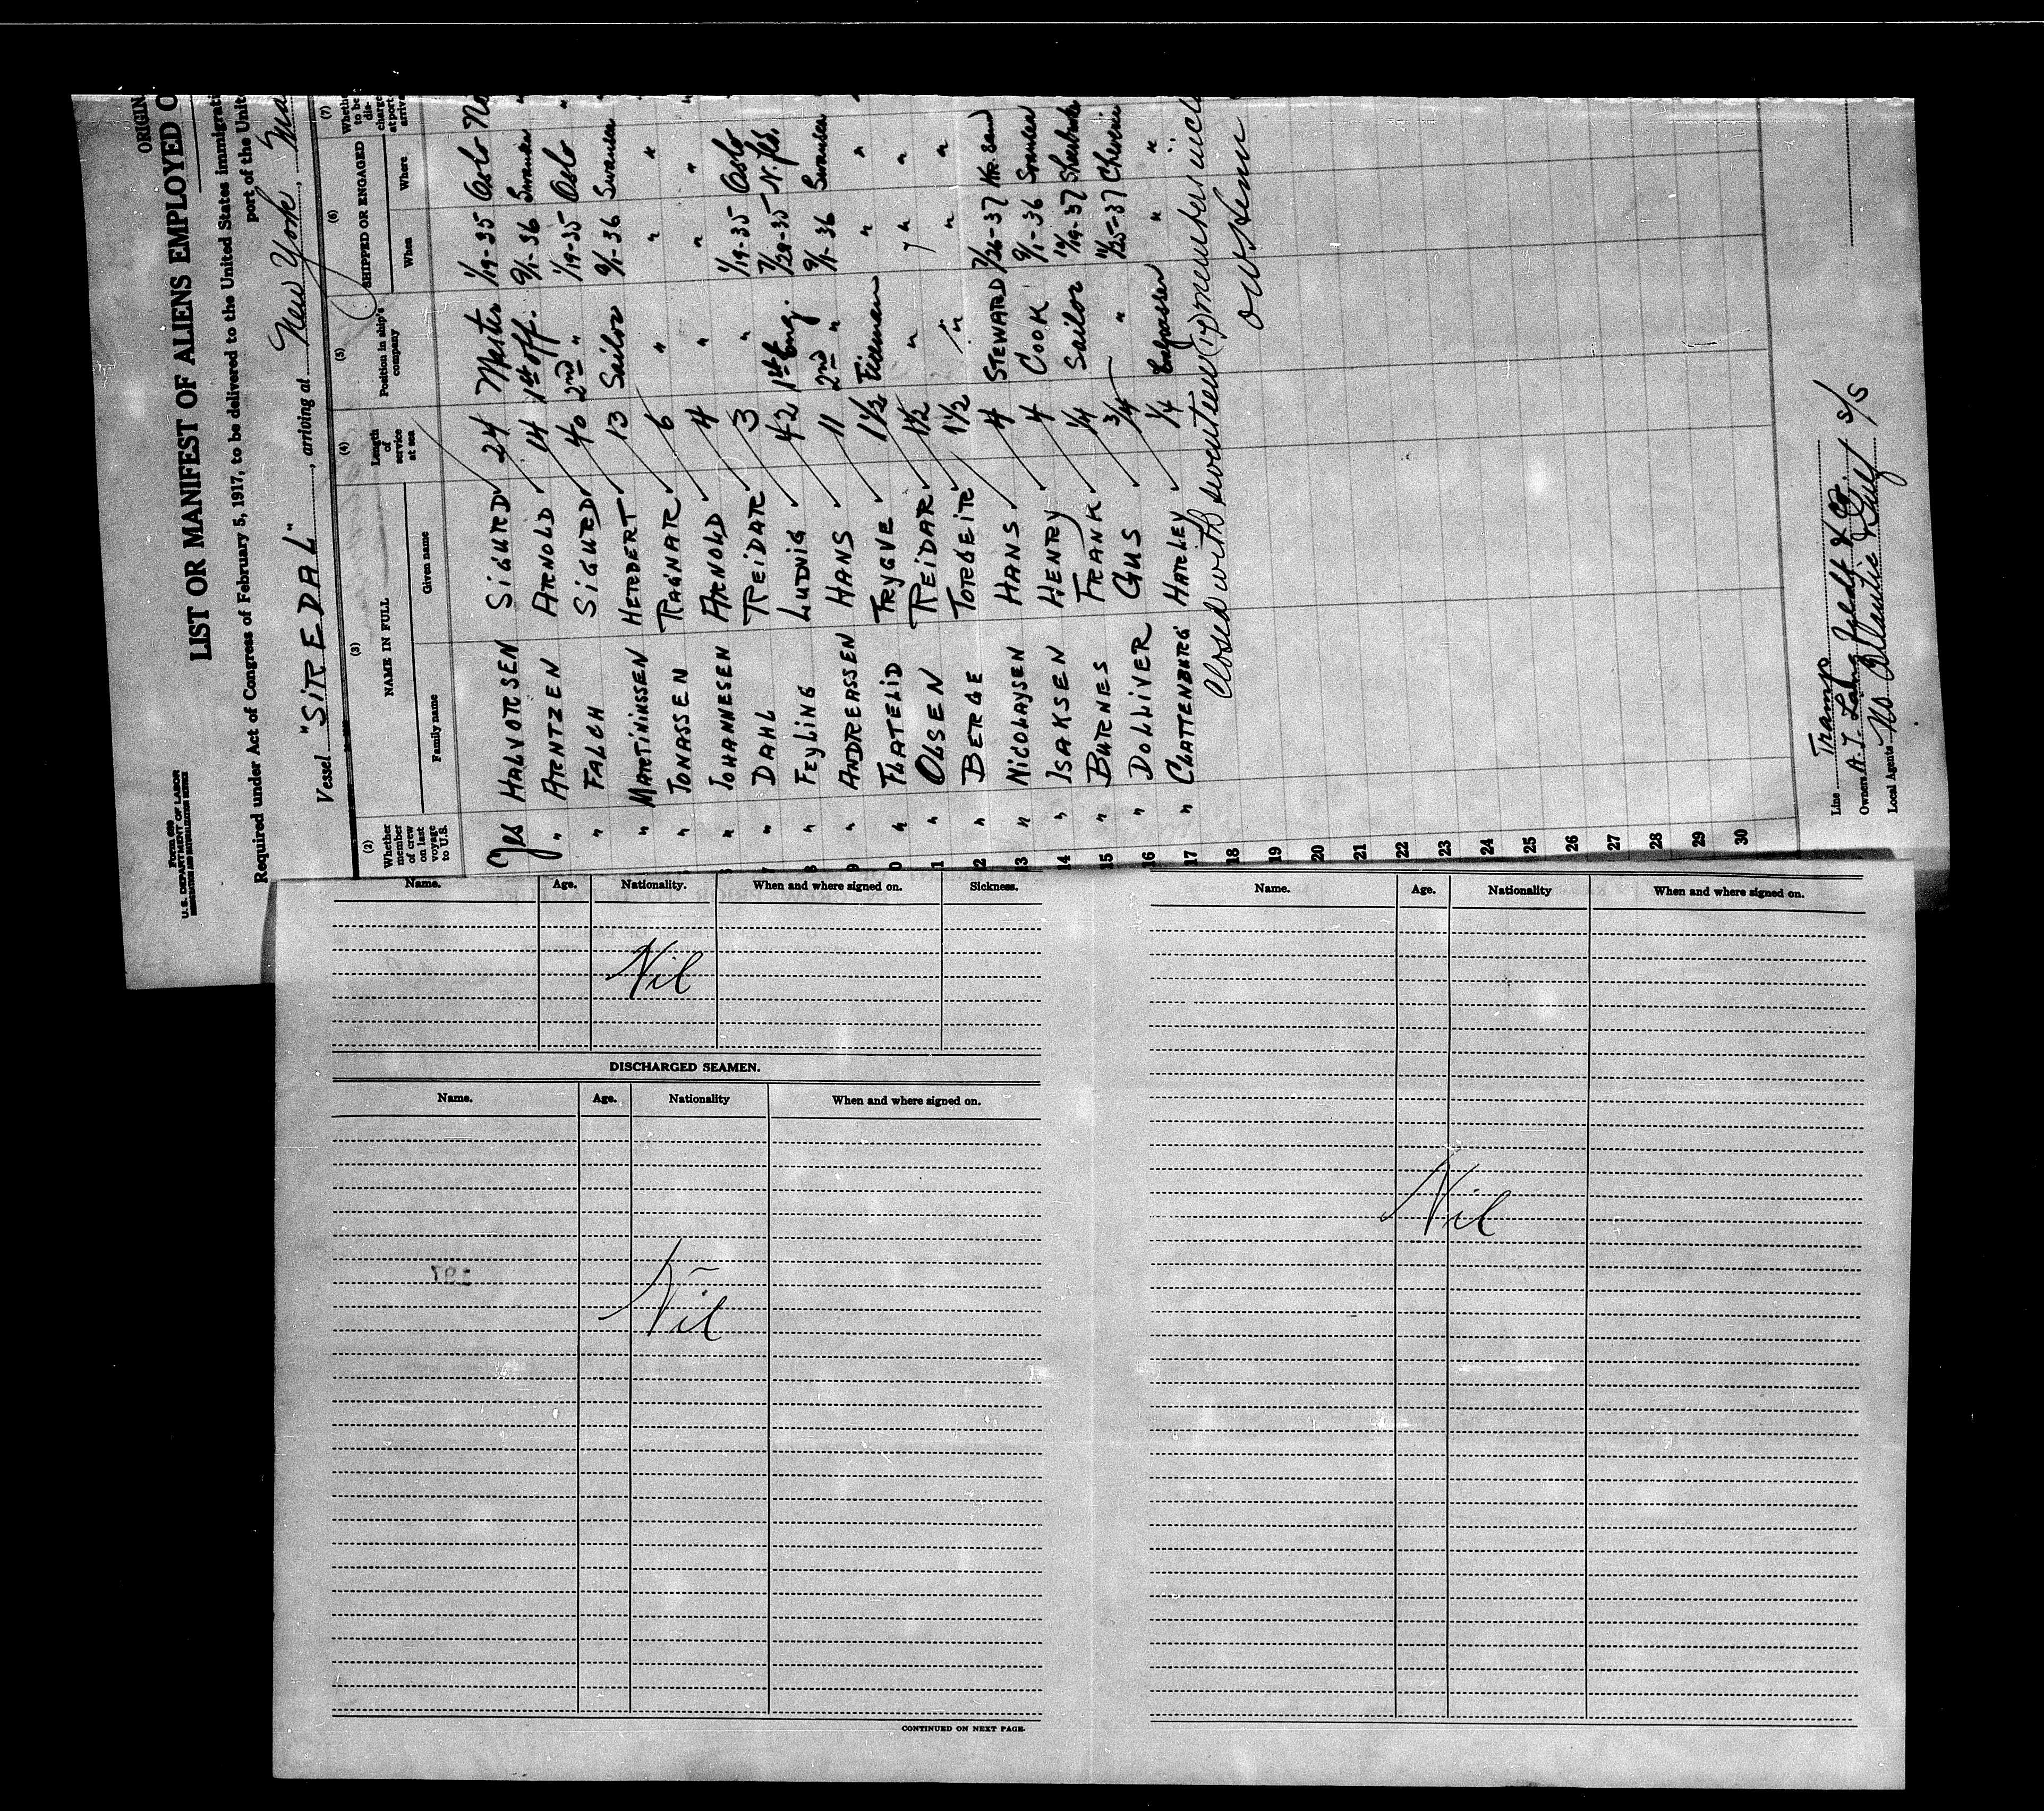 ORIGIN
LIST OR MANIFEST OF ALIENS EMPLOYED O
Form 680
U. S. DEPARTMENT OF LABOR
Required under Act of Congress of February 5, 1917, to be delivered to the United States immigrati
port of the Unit
Vessel "SIREDAL", arriving at New York,
(2) (3) (4) (5) (6) (7)
Whether member of crew on last voyage to U.S. NAME IN FULL Length of service at sea Position in ship's company SHIPPED OR ENGAGED Whethe to be dis- charge at port arriva
Family name Given name When Where
Yes HALVORSEN SIGURD 24 Master 1/19-35 Oslo No
" ARNTZEN ARNOLD 14 1st off. 9/1-36 Swansea "
" FALCH SIGURD 40 2nd " 1/19-35 Oslo "
" MARTINUSSEN HERBERT 13 Sailor 9/1-36 Swansea "
" JONASSEN RAGNAR 6 " " " "
" JOHANNESEN ARNOLD 4 " " " "
" DAHL REIDAR 3 " 1/19-35 Oslo
" FEYLING LUDVIG 42 1st Eng. 7/29-35 N.fld.
" ANDREASSEN HANS 11 2nd " 9/1-36 Swansea "
" FLATELID TRYGVE 1½ Fireman " "
" OLSEN REIDAR 1½ " " "
" BERGE TORGEIR 1½ " " "
12 " NICOLAYSEN HANS 4 STEWARD 7/26-37 Kr.sand
13 " ISAKSEN HENRY 4 COOK 9/1-36 Swansea
14 " BURNES FRANK ¼ Sailor 10/19-37 Sherbrooke
15 " DOLLIVER GUS ¾ " 11/25-37 Cheverie
16 " CLATTENBURG HARLEY ¼ " "
17 Closed with seventeen (17) members incl
18
19
20
21
22
23
24
25
26
27
28
29
30
Line Tramp
Owners A.I. Langfeldt & Co.
Local Agents No Atlantic Gulf S/S
Name. Age. Nationality. When and where signed on. Sickness.
Nil
DISCHARGED SEAMEN.
Name. Age. Nationality When and where signed on.
Nil
CONTINUED ON NEXT PAGE.
Name. Age. Nationality When and where signed on.
Nil